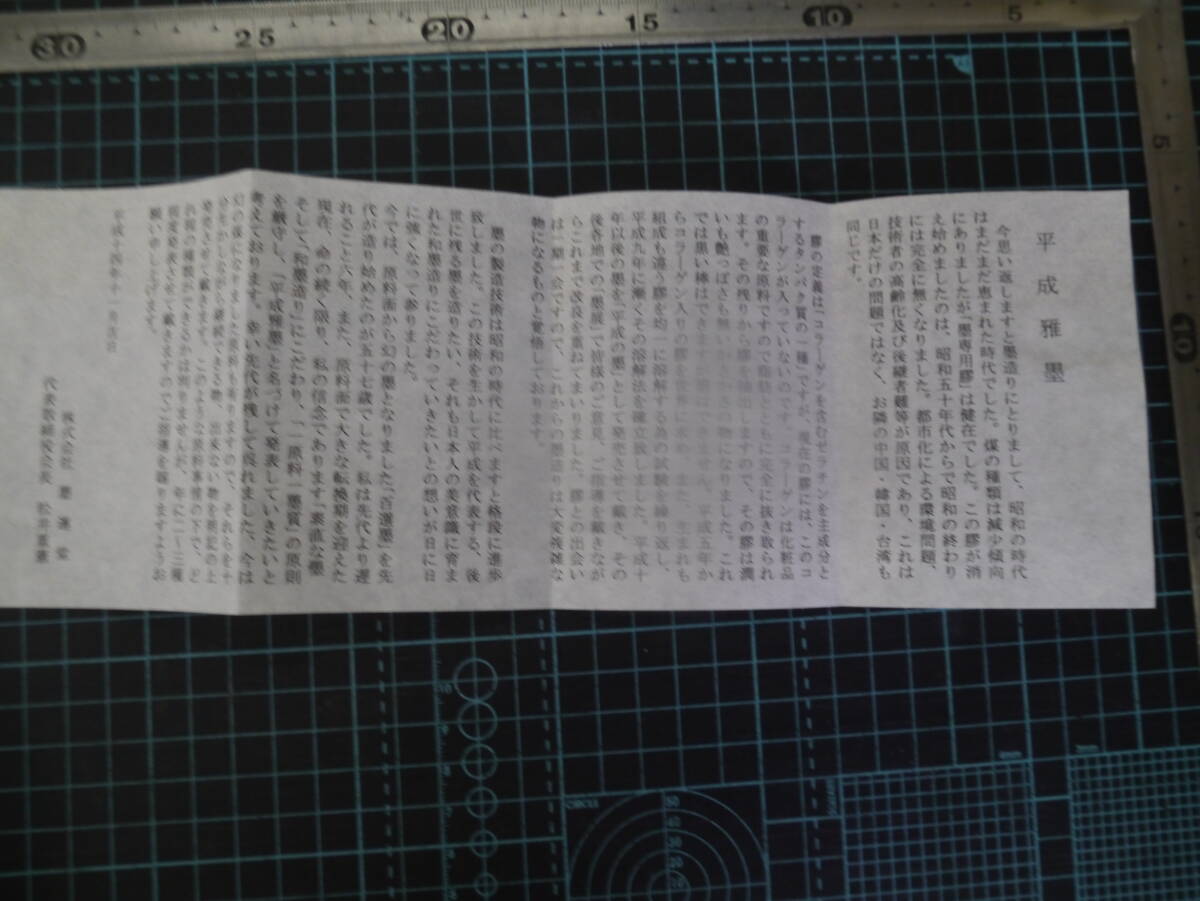 平成雅墨
今思い返しますと墨造りにとりまして、昭和の時代
はまだまだ恵まれた時代でした。煤の種類は減少傾向
にありましたが「墨専用膠」は健在でした。この膠が消
え始めましたのは、昭和五十年代からで昭和の終わり
には完全に無くなりました。都市化による環境問題、
技術者の高齢化及び後継者難等が原因であり、これは
日本だけの問題ではなく、お隣の中国・韓国・台湾も
同じです。
膠の定義は「コラーゲンを含むゼラチンを主成分と
するタンパク質の一種」ですが、現在の膠には、このコ
ラーゲンが入っていないのです。コラーゲンは化粧品
の重要な原料ですので脂肪とともに完全に抜き取られ
ます。その残りから膠を抽出しますので、その膠は潤
いも艶っぽさも無い
物になりました。これ
では黒い棒はできますが墨はできません。平成五年か
らコラーゲン入りの膠を世界に求め、また、生まれも
組成も違う膠を均一に溶解する為の試験を繰り返し、
平成九年に漸くその溶解法を確立致しました。平成十
年以後の墨を「平成の墨」として発売させて戴き、その
後各地での「墨展」で皆様のご意見、ご指導を戴きなが
らこれまで改良を重ねてまいりました。膠との出会い
は一期一会ですので、これからの墨造りは大変複雑な
物になるものと覚悟しております。
墨の製造技術は昭和の時代に比べますと格段に進歩
致しました。この技術を生かして平成を代表する、後
世に残る墨を造りたい、それも日本人の美意識に育ま
れた和墨造りにこだわっていきたいとの想いが日に日
に強くなって参りました。
今では、原料面から幻の墨となりました「百選墨」を先
代が造り始めたのが五十七歳でした。私は先代より遅
れること六年、また、原料面で大きな転換期を迎えた
現在、命の続く限り、私の信念であります「素直な墨」
そして「和墨造り」にこだわり、「一原料一墨質」の原則
を厳守し、「平成雅墨」と名づけて発表していきたいと
考えております。幸い先代が残して呉れました、今は
幻の後になりました原料も有りますので、それらを十
分生かしながら継続できる物、出来ない物を明記の上
発売させて戴きます。このような原料事情の下で、ど
れ程の種類ができるかは判りませんが、年に二〜三種
程度発表させて戴きますのでご指導を賜りますようお
願い申し上げます。
平成十四年十一月吉日
株式会社 墨運堂
代表取締役会長 松井重憲